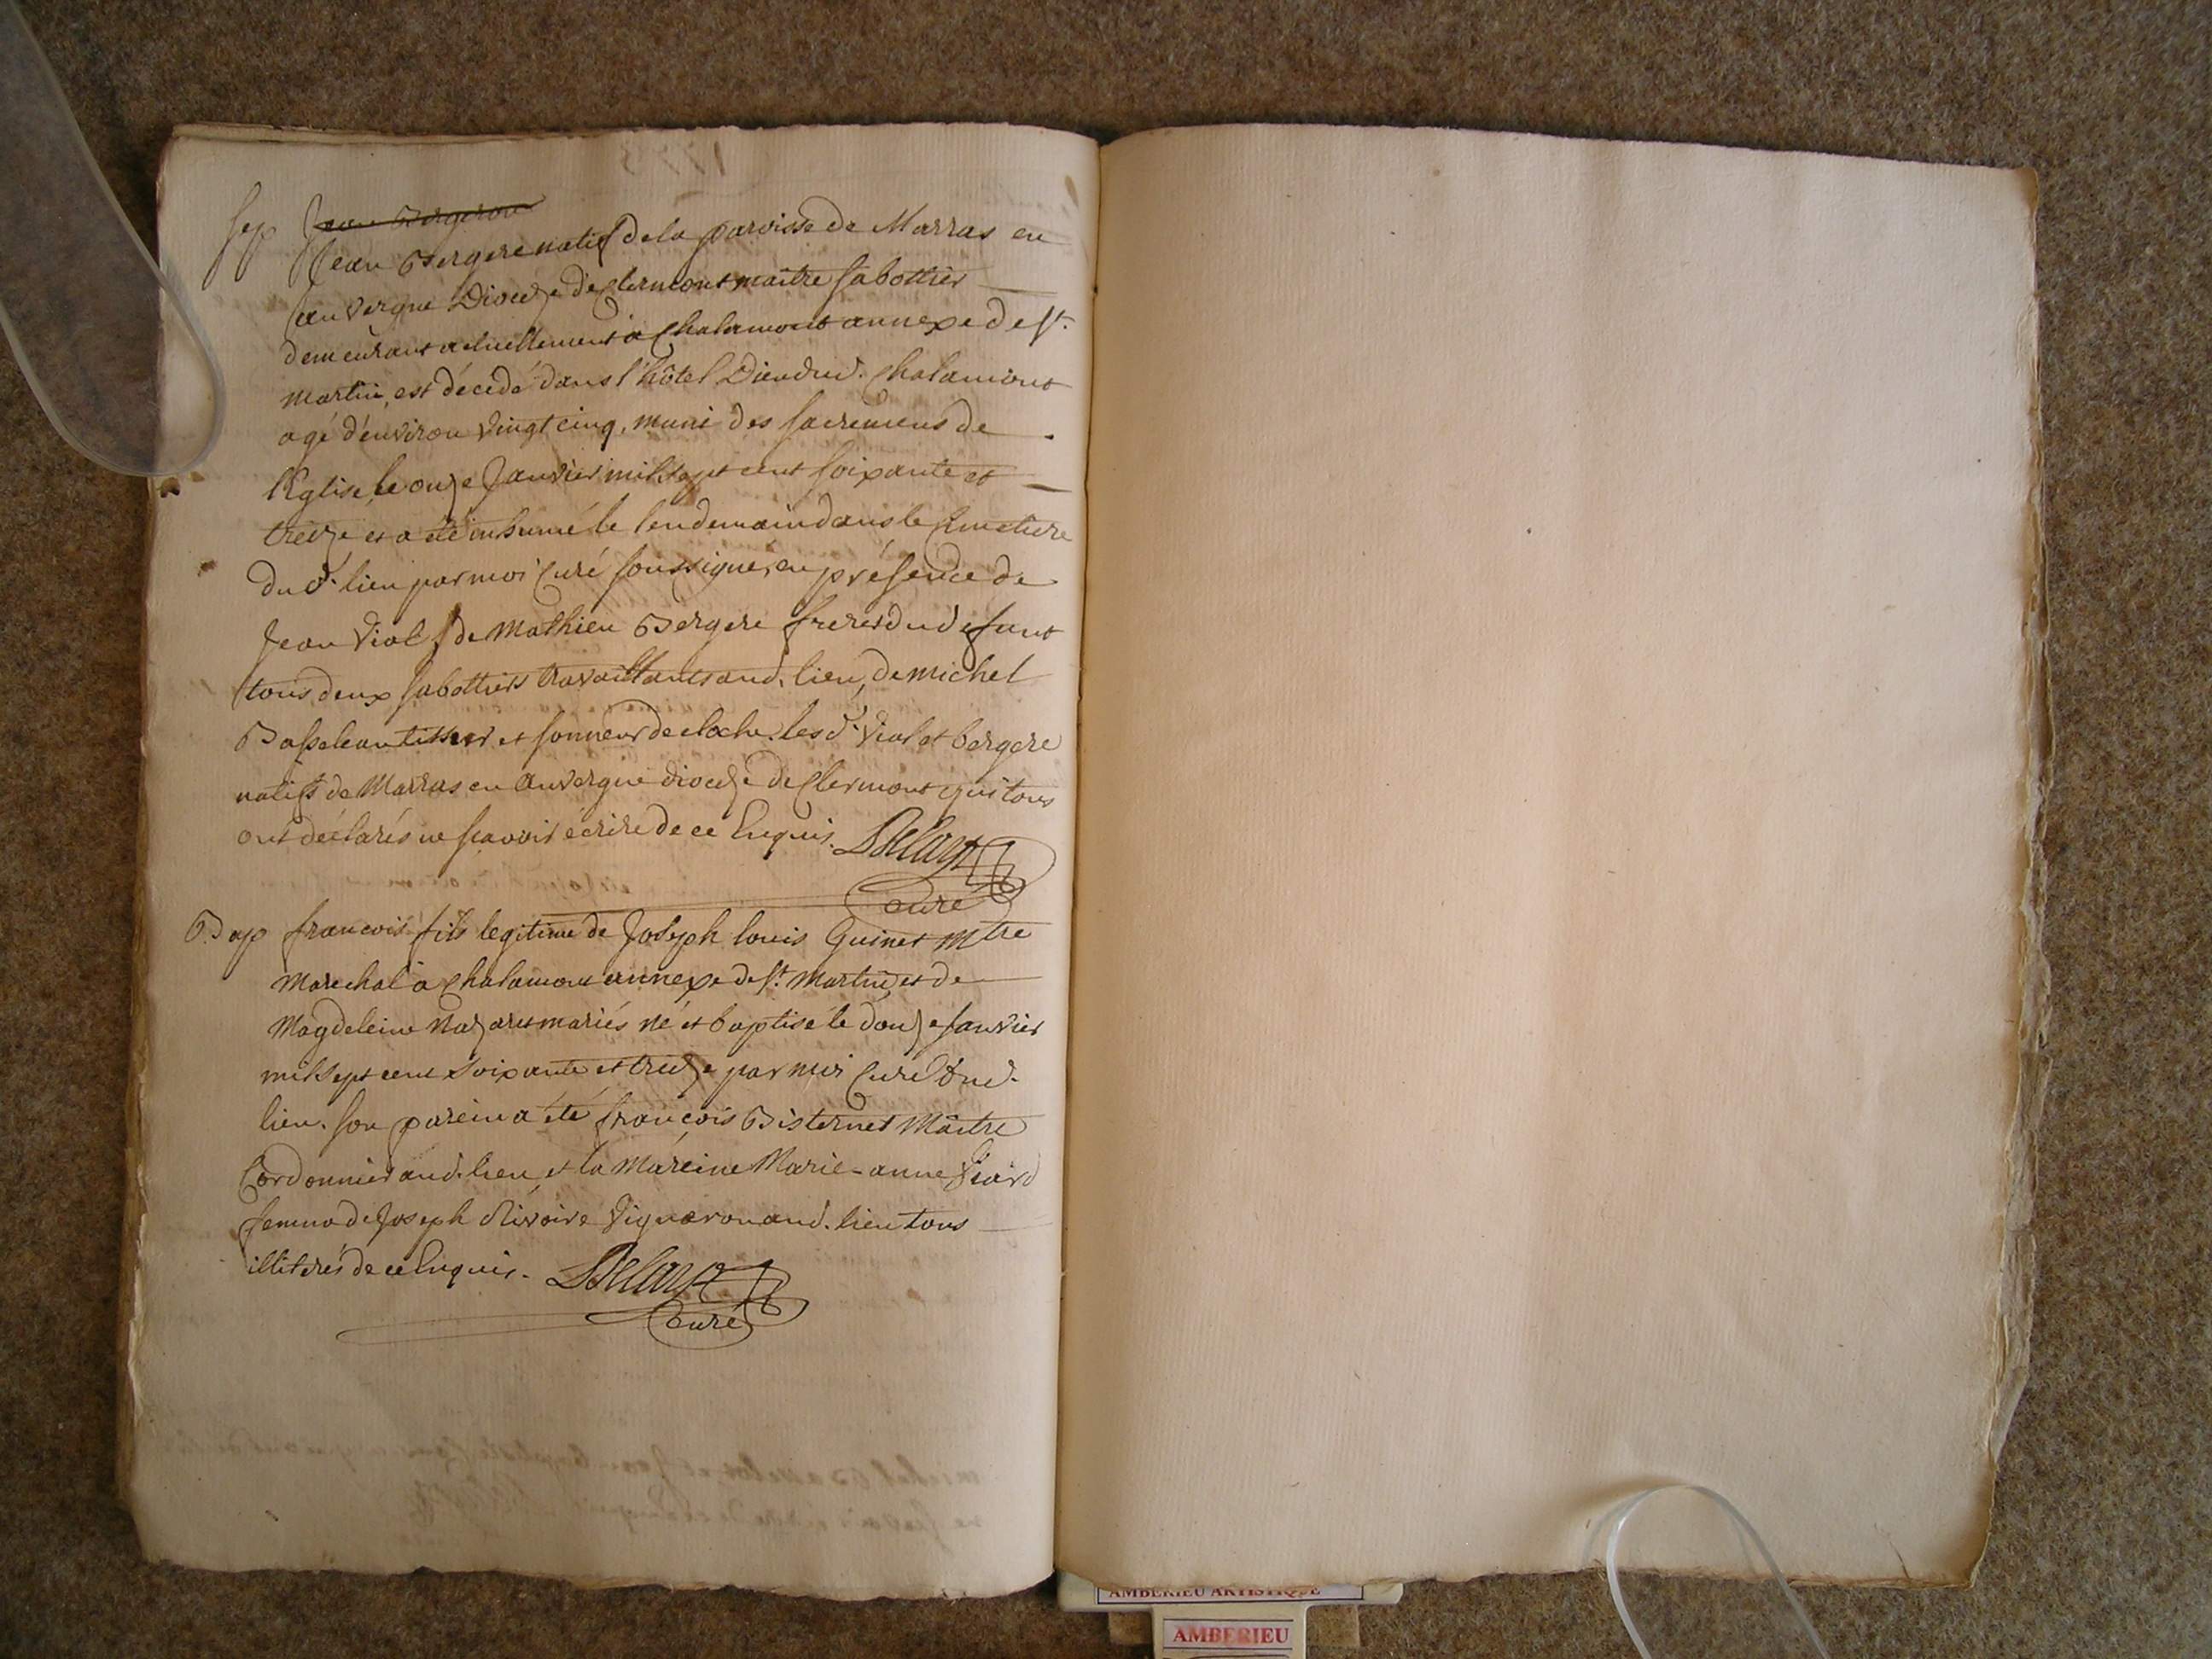 Sep Jean Bergeron
Jean Bergere natif de la paroisse de Marras en
auvergne Dioceze de Clermont maitre sabottier
demeurant actuellement a Chalamont annexe de st.
martin, est décedé dans l'hôtel Dieu dud. Chalamont
agé d'environ vingt cinq, muni des sacremens de
l'Eglise, le onze Janvier mil sept cent soixante et
treize et a été inhumé le lendemain dans le Cimetiere
du d. lieu par moi Curé soussigné, en présence de
Jean Viol de Mathieu Bergere freres du défunt
tous deux sabottiers travaillants aud. lieu, de michel
Basseleau tissier et sonneur de cloche. les d. Viol et bergere
natifs de Marras en auvergne dioceze de Clermont qui tous
ont déclarés ne scavoir écrire de ce Enquis. Delary
curé
Bap francois fils legitime de Joseph louis Guinet mtre
marechal à Chalamont annexe de st. martin et de
Magdeleine Nazaret mariés né et baptisé le douze Janvier
mil sept cent soixante et treize par moi Curé dud.
lieu. son parein a été françois Bisternet Maitre
Cordonnier aud. lieu, et la mareine Marie-anne
femme de Joseph Rivoire Vigneron aud. lieu tous
illiterés de ce Enquis. Delary
Curé
AMBERIEU ARTISTIQUE
AMBERIEU